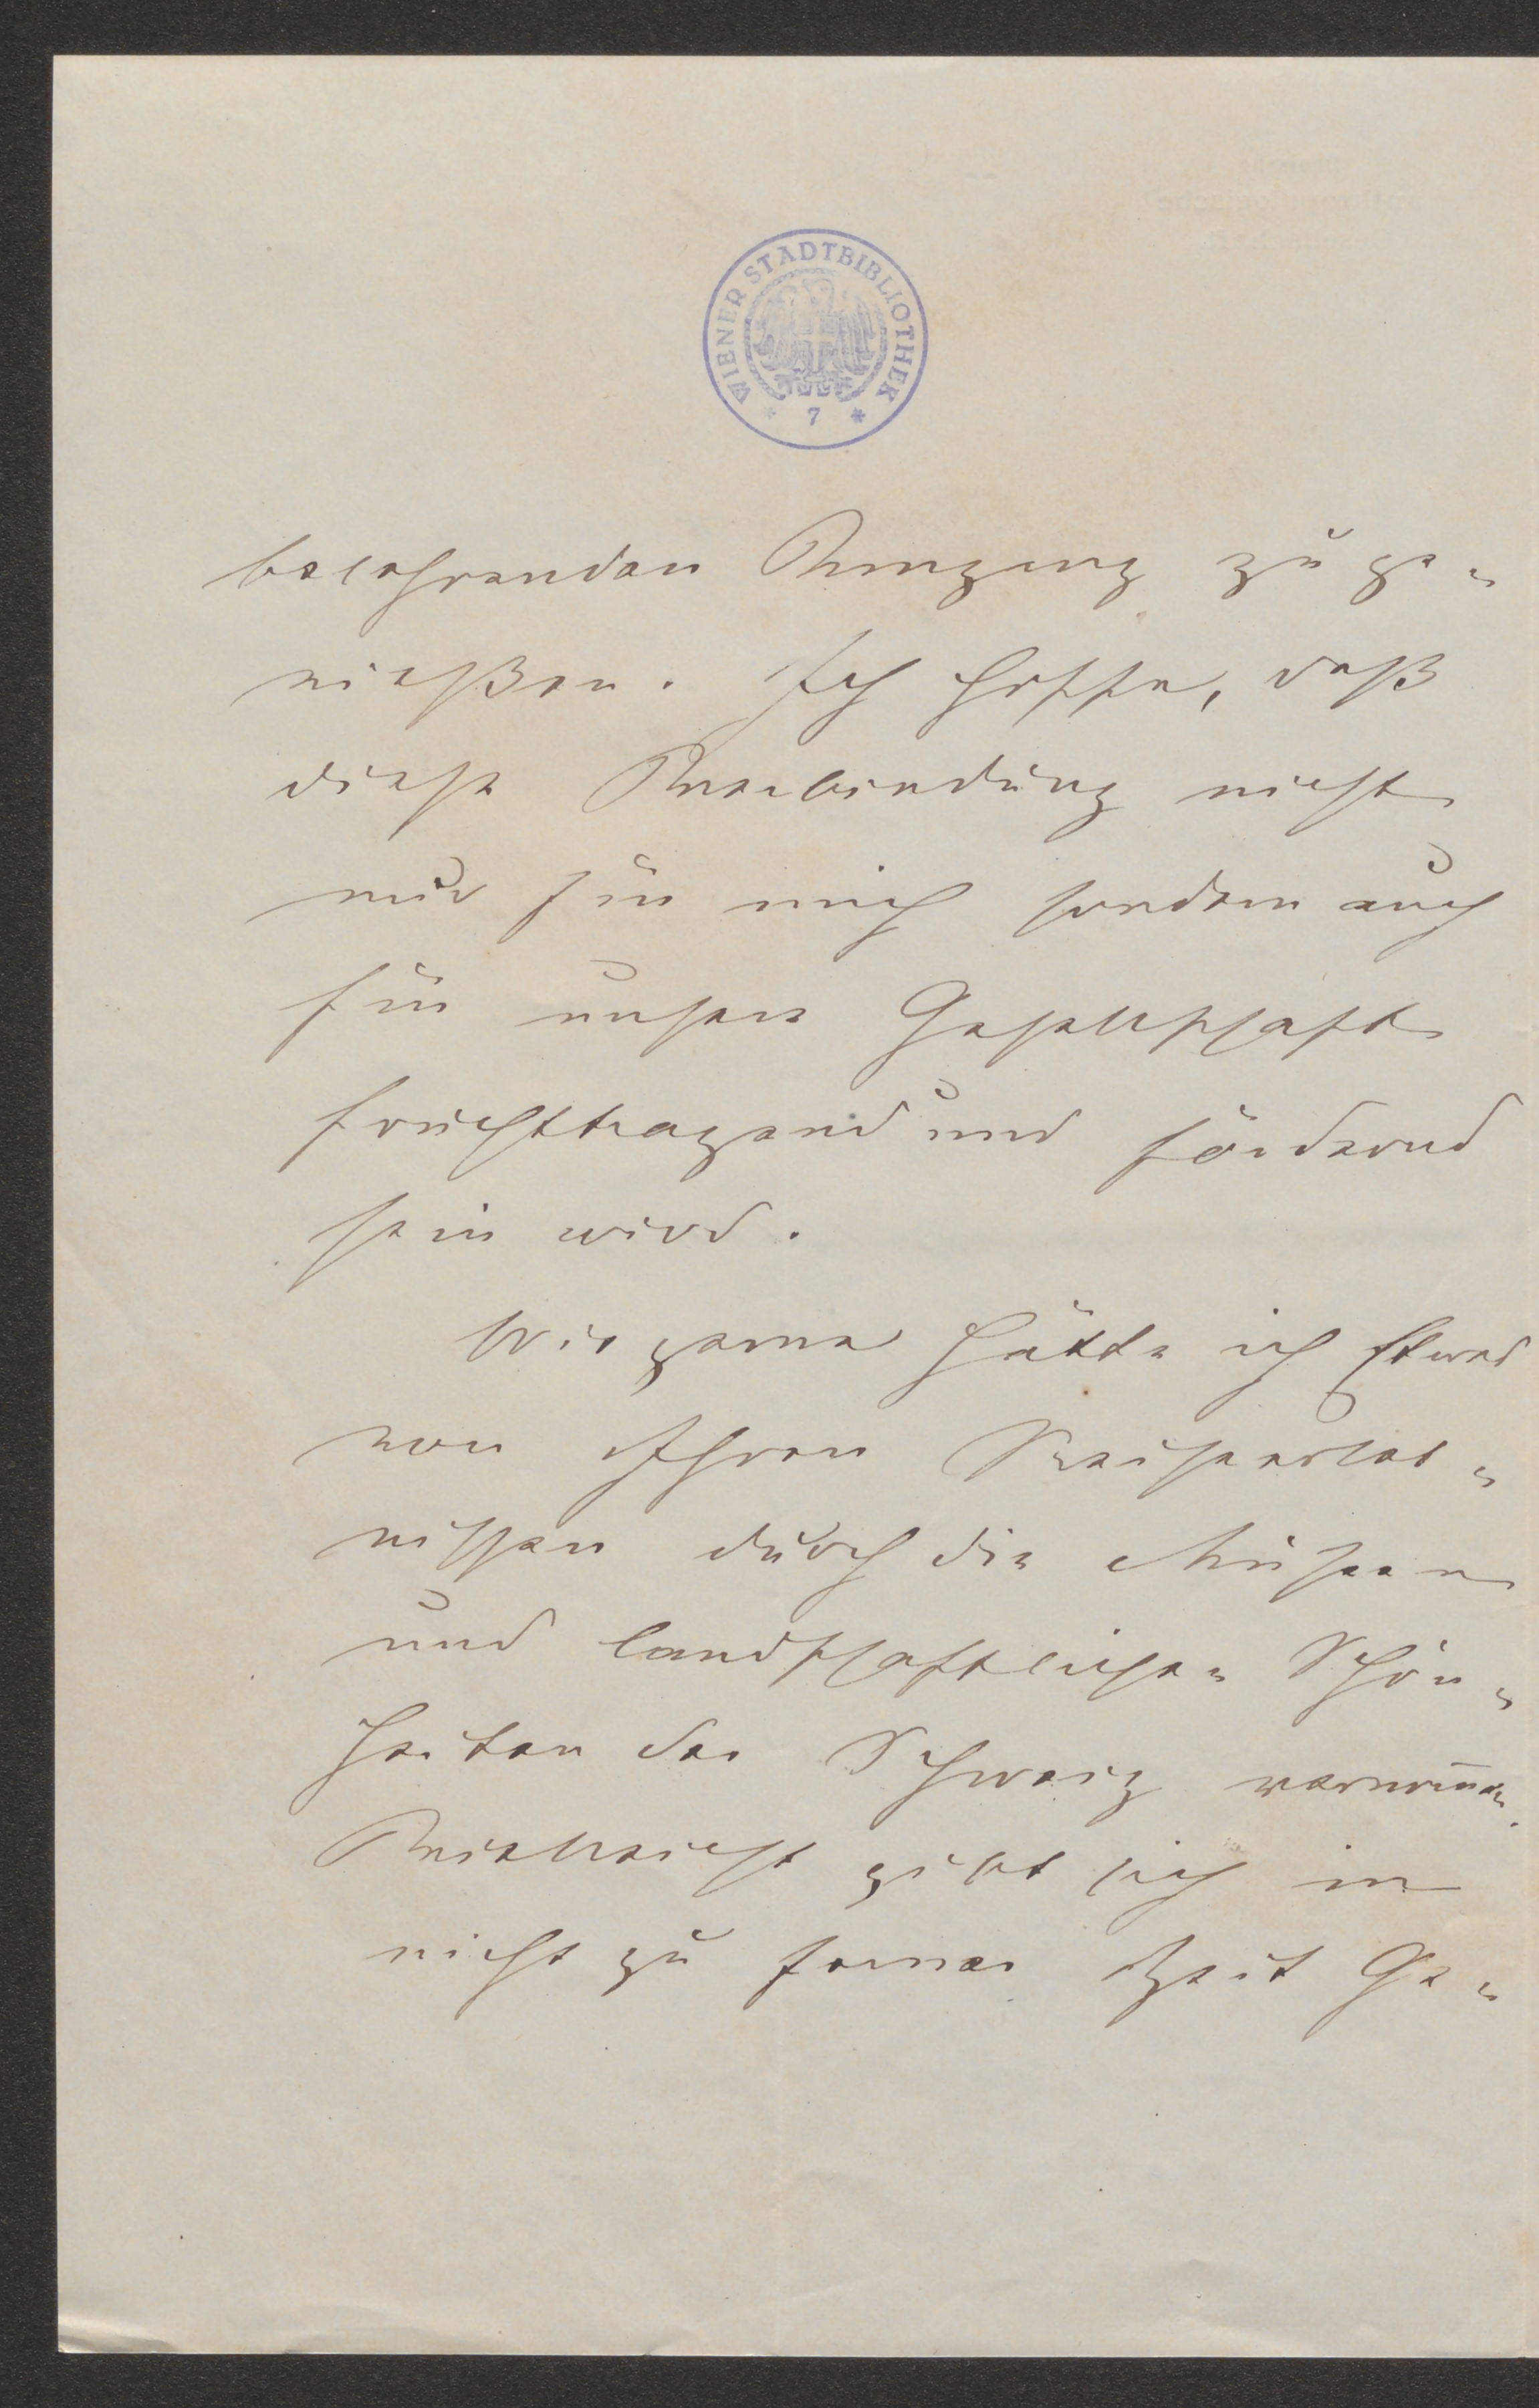 WIENER STADTBIBLIOTHEK
* 7 *
belehrenden Umgang zu ge-
nießen. Ich hoffe, daß
diese Verbindung nicht
nur für mich sondern auch
für unsere Gesellschaft
fruchttragend und fördernd
sein wird.
Wie gerne hätte ich Etwas
von Ihren Reiseerleb-
nissen durch die Museen
und landschaftlichen Schön-
heiten der Schweiz vernom̅en.
Vielleicht gibt sich in
nicht zu ferner Zeit Ge-